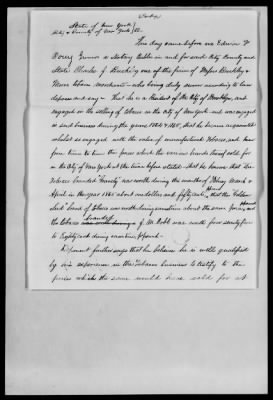 (Copy)
State of New York }
City & County of New York } SS.
This day came before me Edwin F
Corey Junior a Notary Public in and for said City and
State Charles J. one of the firm of Messrs Bulkley &
Moore tobacco merchants who being duly sworn according to law
deposes and says – That he is a Resident of the City of Brooklyn, and
engaged in the selling of tobacco in the City of New York and was engaged
in such business during the years 1864 & 1865, that he became acquainted
whilst so engaged with the sales of manufactured tobaccos, and knew
from time to time the price which the various brands thereof sold for
in the City of New York at the time before stated – that he knows that the
tobacco branded " " was worth during the months of March &
April in the year 1865 about one dollar and fifty cents, that the "Golden
" brand of tobacco was worth during same time about the same price, and
the tobacco branded J. M. Cobb was worth from seventy five
to Eighty cents during same time
Deponent further says that he believes he is well qualified
by his experience in the Tobacco business to testify to the
prices which the same would have sold for at